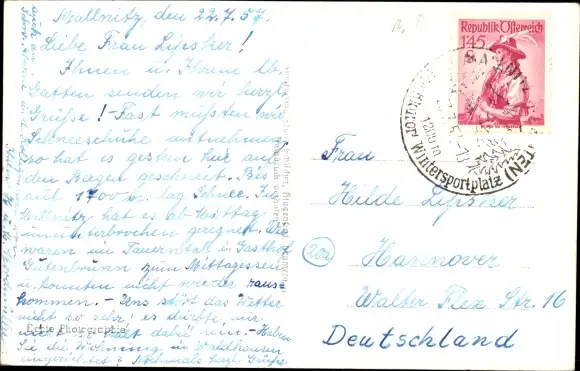 Mallnitz, den 22.7.57
Liebe Frau Lipsker!
Ihnen u. Ihrem lb.
Gatten senden wir herzl.
Grüße! - Fast müßten wir
Schneeschuhe mitnehmen,
so hat es gestern hier auf
den Bergen geschneit. Bis
auf 1700 m lag Schnee. In
Mallnitz hat es ab Mittag
ununterbrochen geregnet. Wir
waren im Tauerntal b. Gasthof
Gutenbrunn zum Mittagessen
u. konnten nicht wieder raus-
kommen. - Uns stört das Wetter
nicht so sehr! es dürfte nur
nicht kalt dabei - Haben
Sie die Wohnung in Waldhausen
eingerichtet? Nochmals herzl. Grüße
auch an
Echte Photographie
Republik Österreich
1.45
MALLNITZ (KÄRNTEN)
1200 m
Wintersportplatz
Frau
Hilde Lipsker
(20a)
Hannover
Walter Flex Str. 16
Deutschland